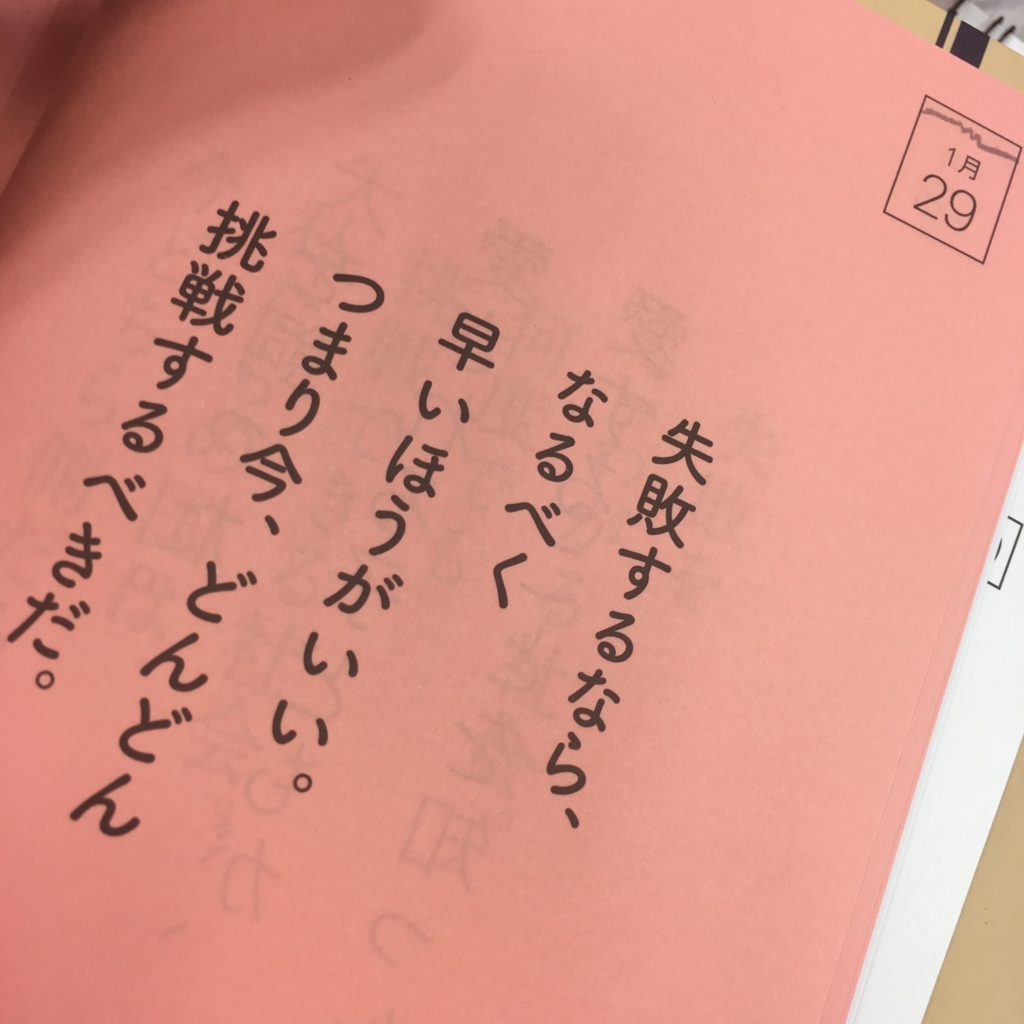 1月
29
失敗するなら、
なるべく
早いほうがいい。
つまり今、どんどん
挑戦するべきだ。